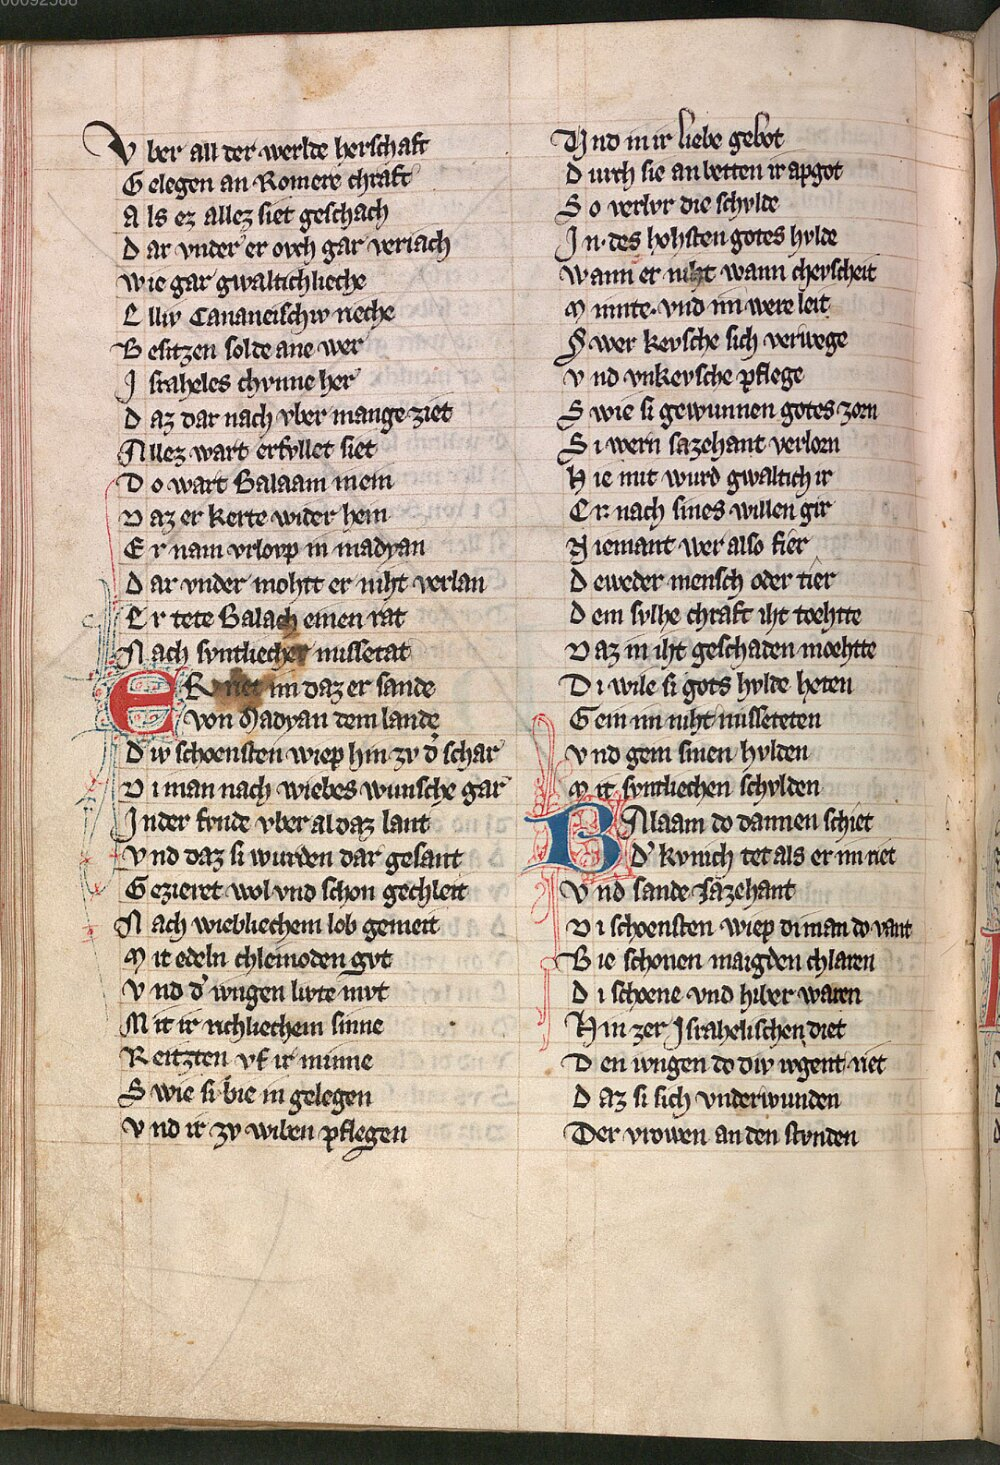 00092588
V ber all der werlde herschaft
G elegen an Romere chraft
A ls ez allez siet geschach
D ar vnder er ovch gar veriach
W ie gar gwaltichlieche
E lliv Cananeischiv rieche
B esitzen solde ane wer
J sraheles chvnne her
D az dar nach vber mange ziet
A llez wart erfvllet siet
D o wart Balaam inein
D az er kerte wider hein
E r nam vrlovp in madyan
D ar vnder mohtt er niht verlan
E r tete Balach einen rat
N ach svntliecher missetat
ER riet im daz er sande
von Madyan dem lande
D iv schoensten wiep hin zv d' schar
D i man nach wiebes wunsche gar
J nder fvnde vber al daz lant
V nd daz si wurden dar gesant
G ezieret wol vnd schon gechleit
N ach wiebliechem lob gemeit
M it edeln chleinoden gvt
V nd d' ivngen livte mvt
M it ir richliechem sinne
R eitzten vf ir minne
S wie si bie in gelegen
V nd ir zv wiben pflegen
V nd in ir liebe gebot
D urch sie an betten ir apgot
S o verlvr die schvlde
J n des hohsten gotes hvlde
W ann er niht wann chevscheit
M inte vnd im were leit
S wer kevsche sich verwege
V nd vnkevsche pflege
S wie si gewunnen gotes zorn
S i wern sazehant verlorn
H ie mit wurd gwaltich ir
E r nach sines willen gir
N iemant wer also fier
D eweder mensch oder tier
D em svlhe chraft iht toehtte
D az in iht geschaden moehtte
D i wile si gots hvlde heten
G ein im niht misseteten
V nd gein sinen hvlden
M it svntliechen schvlden
BAlaam do dannen schiet
D' kvnich tet als er im riet
V nd sande sazehant
D i schoensten wiep di man do vant
B ie schonen maigden chlaren
D i schoene vnd hiber waren
H in zer Jsrahelischen diet
D en ivngen do div ivgent riet
D az si sich vnderwunden
D er vrowen an den stvnden